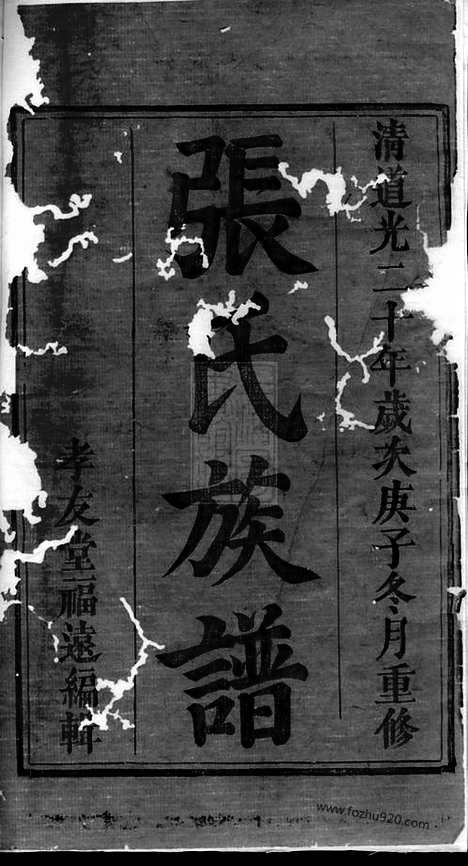 清道光二十年歲次庚子冬月重修
張氏族譜
孝友堂福遠編輯
www.fozhu920.com